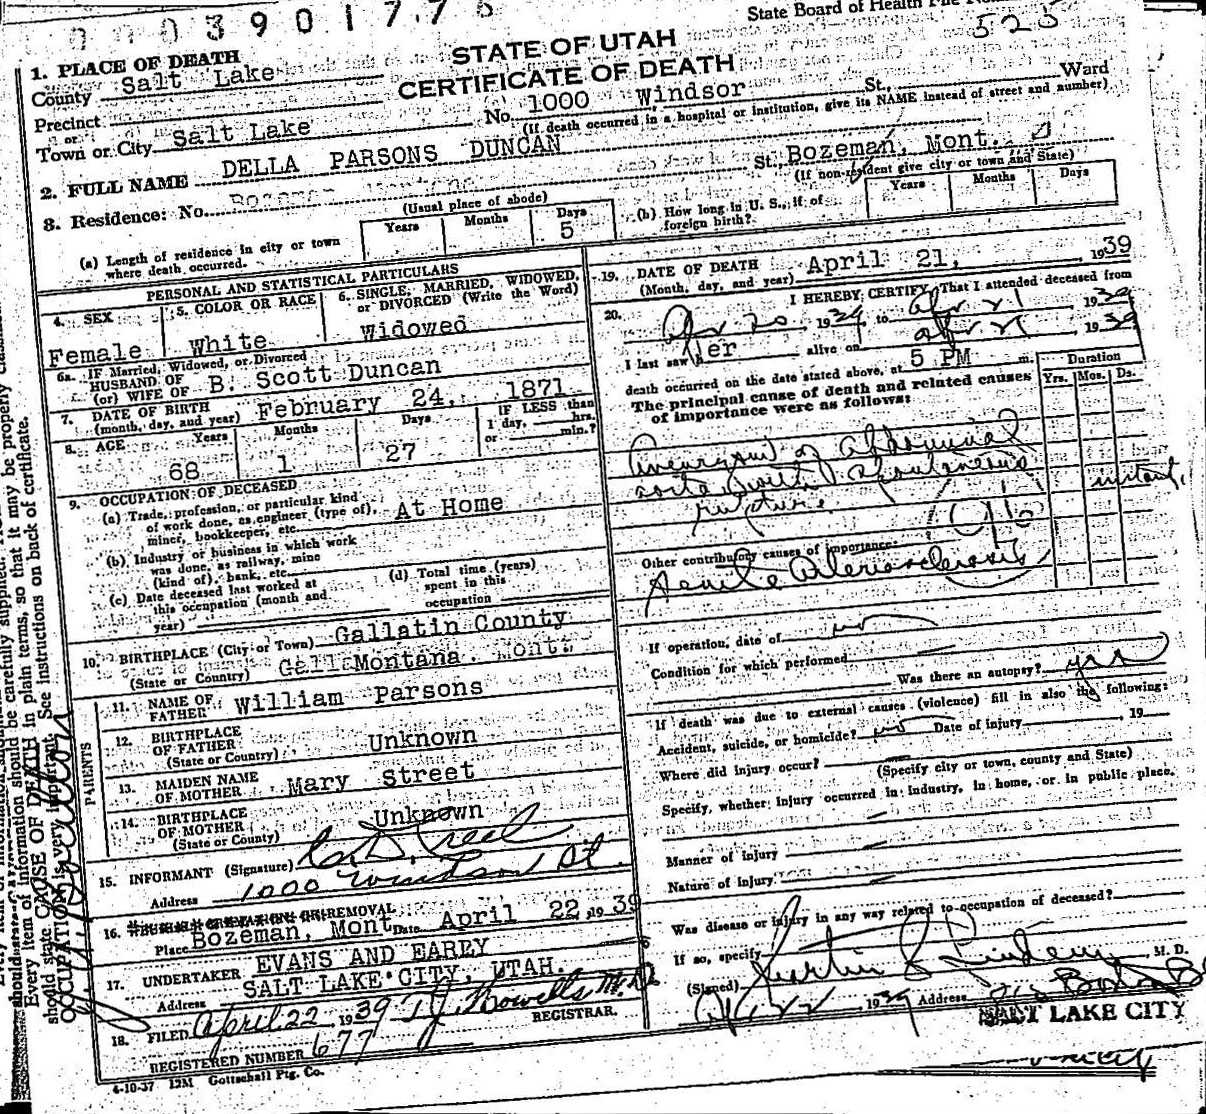 0 0 0 3 9 0 1 7 7 5
State Board of Health File No.
525
STATE OF UTAH
CERTIFICATE OF DEATH
1. PLACE OF DEATH
County Salt Lake
Precinct
or
Town or City Salt Lake No. 1000 Windsor St., Ward
(If death occurred in a hospital or institution, give its NAME instead of street and number)
2. FULL NAME DELLA PARSONS DUNCAN
3. Residence: No. St. Bozeman, Mont.
(Usual place of abode) (If non-resident give city or town and State)
(a) Length of residence in city or town where death occurred. Years Months Days 5
(b) How long in U. S., if of foreign birth? Years Months Days
PERSONAL AND STATISTICAL PARTICULARS
4. SEX Female
5. COLOR OR RACE White
6. SINGLE, MARRIED, WIDOWED, or DIVORCED (Write the Word) Widowed
6a. IF Married, Widowed, or Divorced
HUSBAND OF
(or) WIFE OF B. Scott Duncan
7. DATE OF BIRTH
(month, day, and year) February 24, 1871
8. AGE Years 68 Months 1 Days 27 IF LESS than 1 day, hrs. or min.?
9. OCCUPATION OF DECEASED
(a) Trade, profession, or particular kind of work done, as engineer (type of), miner, bookkeeper, etc. At Home
(b) Industry or business in which work was done, as railway, mine (kind of), bank, etc.
(c) Date deceased last worked at this occupation (month and year)
(d) Total time (years) spent in this occupation
10. BIRTHPLACE (City or Town) Gallatin County
(State or Country) Montana
PARENTS
11. NAME OF FATHER William Parsons
12. BIRTHPLACE OF FATHER (State or Country) Unknown
13. MAIDEN NAME OF MOTHER Mary Street
14. BIRTHPLACE OF MOTHER (State or County) Unknown
15. INFORMANT (Signature)
Address 1000 Windsor St.
16. REMOVAL
Place Bozeman, Mont Date April 22, 1939
17. UNDERTAKER EVANS AND EARLY
Address SALT LAKE CITY, UTAH.
18. FILED April 22 1939 T J Howells, M.D. REGISTRAR.
REGISTERED NUMBER 677
4-10-37 12M Gottschall Ptg. Co.
19. DATE OF DEATH
(Month, day, and year) April 21, 1939
20. I HEREBY CERTIFY, That I attended deceased from
Apr 20 1939, to Apr 21 1939
I last saw her alive on Apr 21, 1939
death occurred on the date stated above, at 5 PM m.
The principal cause of death and related causes of importance were as follows:
Duration
Yrs. Mos. Ds.
Aneurysm of abdominal
aorta with spontaneous instant,
rupture.
Other contributory causes of importance:
Senile Arteriosclerosis
If operation, date of no
Condition for which performed
Was there an autopsy? yes
If death was due to external causes (violence) fill in also the following:
Accident, suicide, or homicide? no Date of injury , 19
Where did injury occur?
(Specify city or town, county and State)
Specify, whether injury occurred in industry, in home, or in public place.
Manner of injury
Nature of injury
Was disease or injury in any way related to occupation of deceased?
If so, specify
(Signed) M. D.
1939 Address
SALT LAKE CITY
Every item of information should be carefully supplied.
should state CAUSE OF DEATH in plain terms, so that it may be properly
OCCUPATION is very important. See instructions on back of certificate.